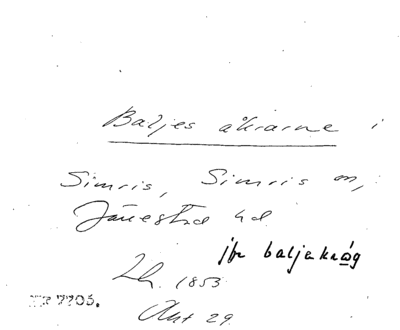 Baljes åkrarne i
Simris, Simris sn,
Järrestad hd
jfr baljakråg
Lh. 1853
Akt 29